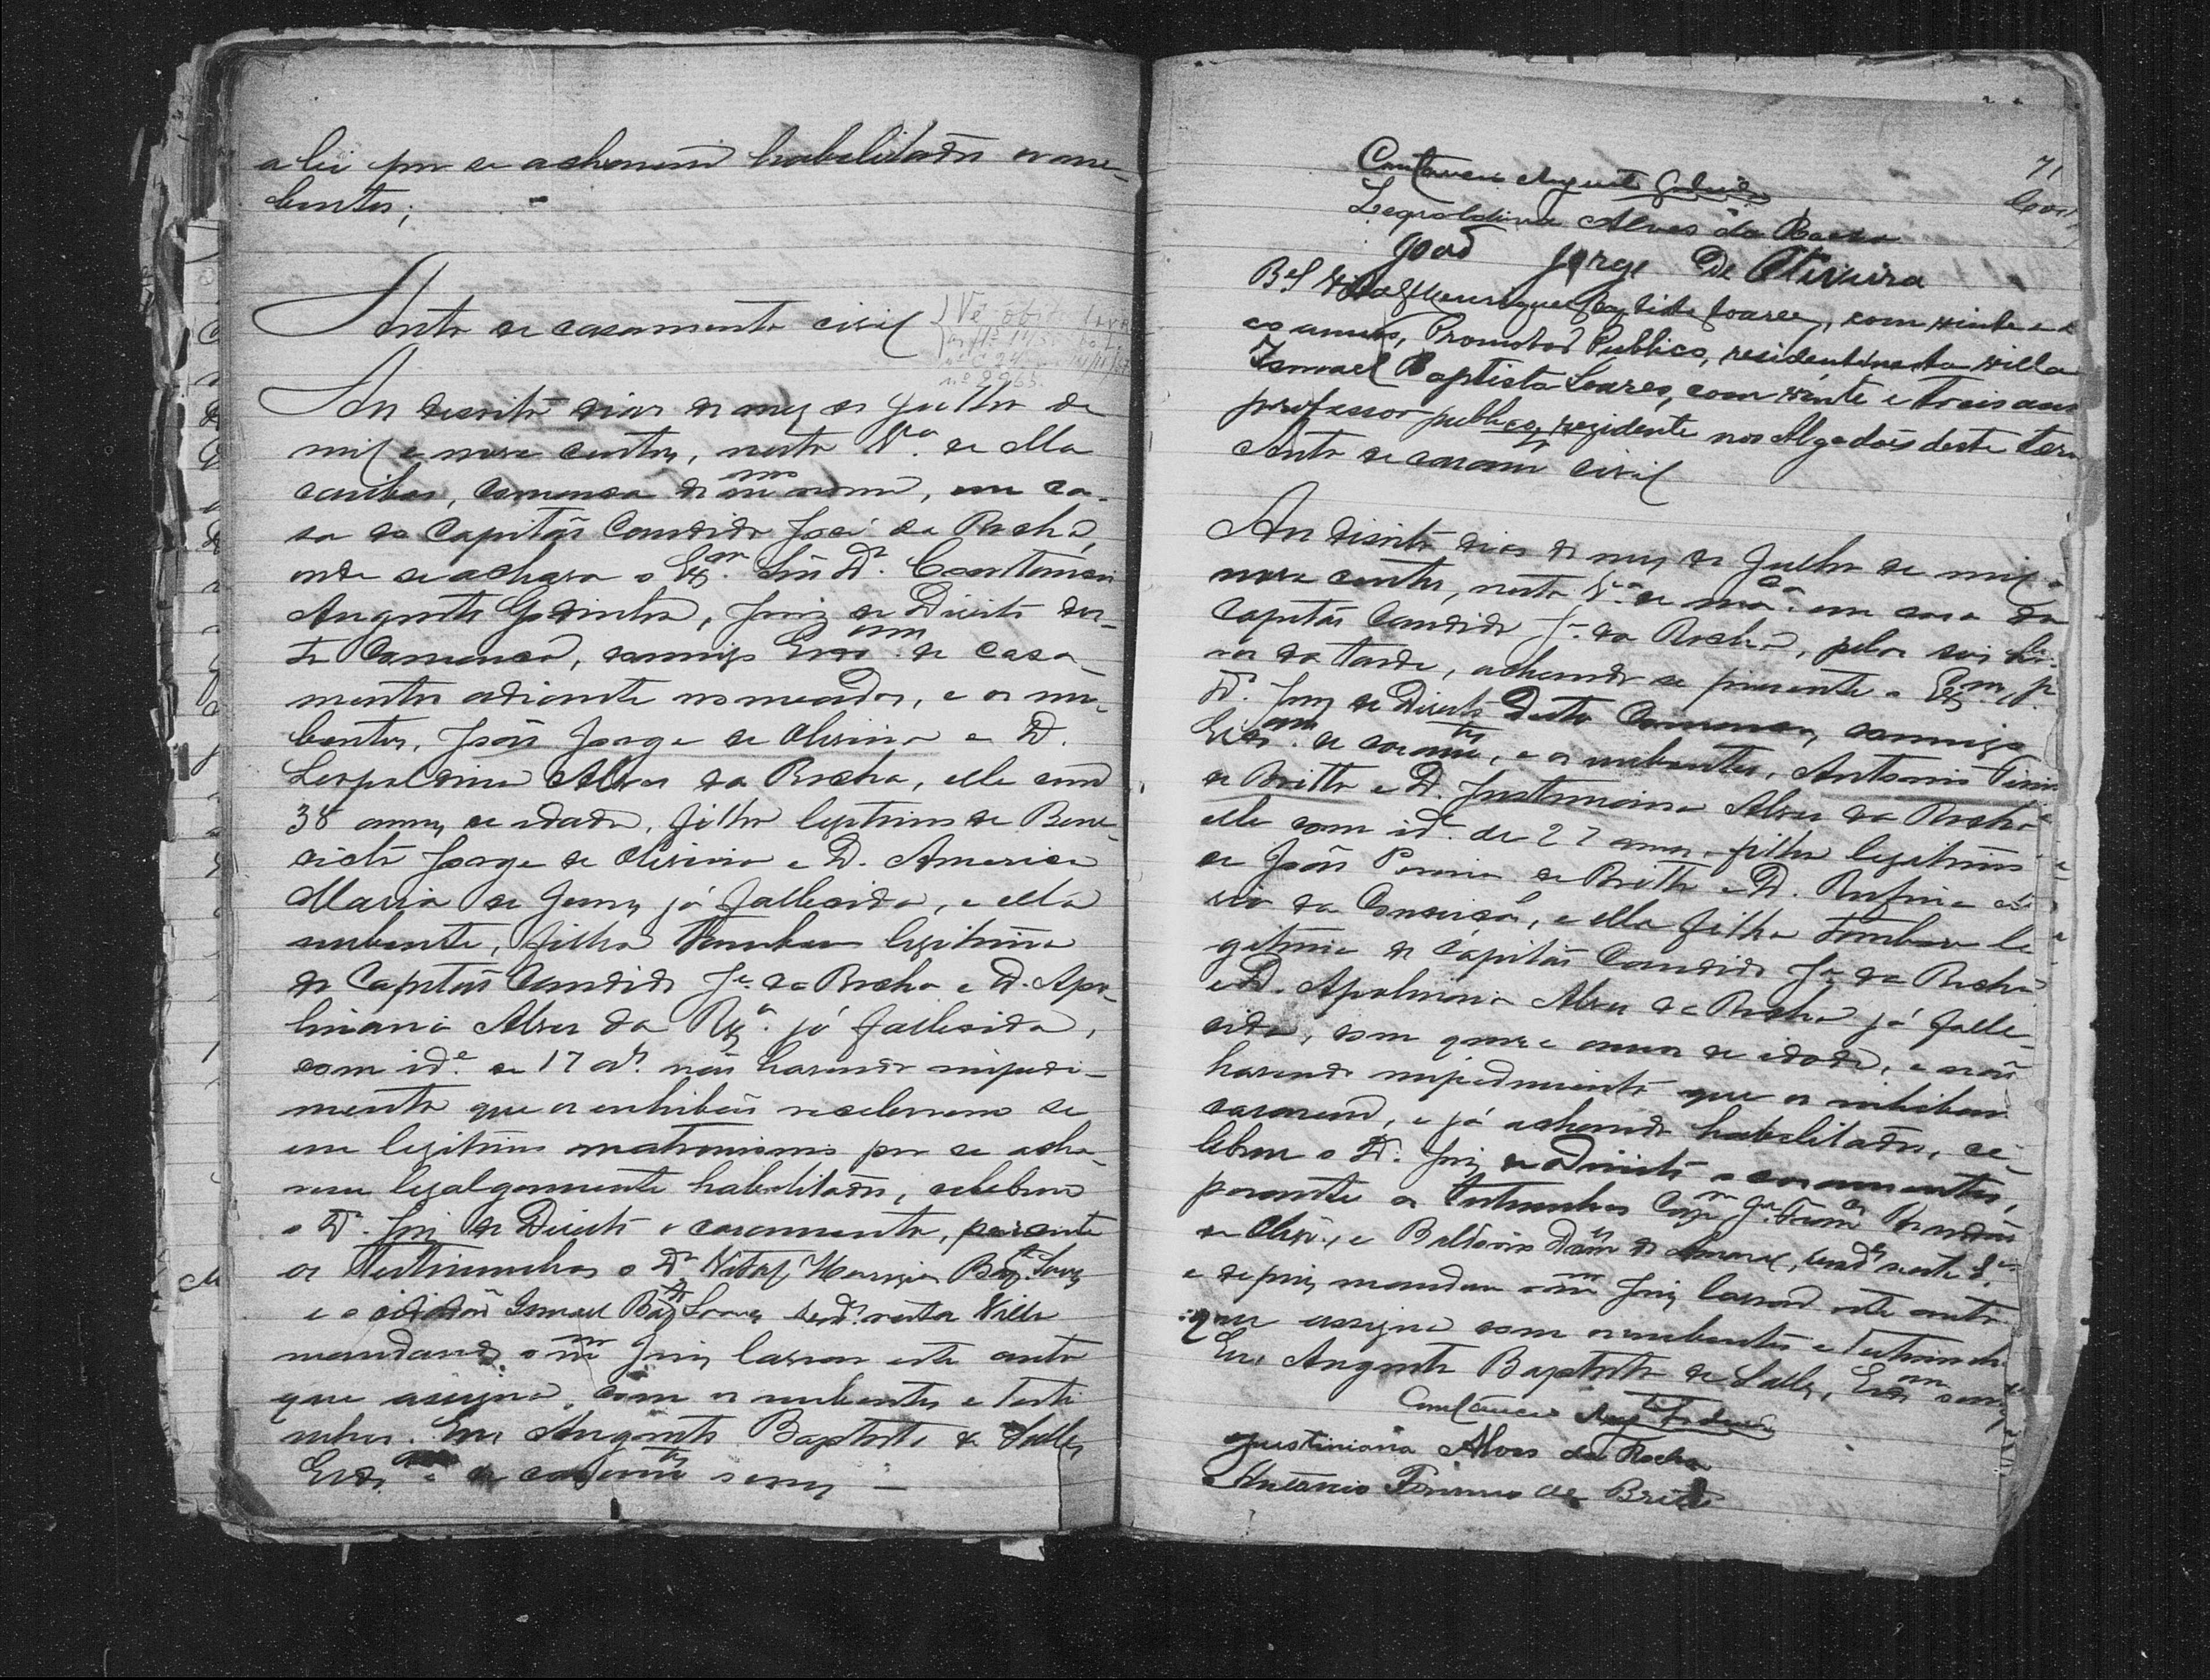 a lei por se acharem habilitados os nu-
bentes;
Auto de casamento civil
Vê óbito
nº 2265.
Aos desoito dias do mez de Julho de
mil e nove centos, nesta Vª. de Ma
caubas, Comarca do mmo nome, em ca-
sa do Capitão Candido José da Rocha,
onde se achava o Exmo. Snr Dr. Constancio
Augusto Godinho, Juiz de Direito des-
ta Comarca, commigo Escam. de casa-
mentos adiante nomeado, e os nu-
bentes, João Jorge de Oliveira e D.
Leopoldina Alves da Rocha, elle com
38 annos de idade, filho legitimo de Bene-
dicto Jorge de Oliveira e D. America
Maria de Jesus já fallecida, e ella
nubente, filha tambem legitima
do Capitão Candido Je. da Rocha e D. Apo-
linaria Alves da Rxª. já fallecida,
com ide. de 17 as. não havendo impedi-
mento que os inhibão receberem se
em legitimo matrimonio por se acha-
rem legalgormente habilitados, celebrou
o Dr. Juiz de Direito o casamento, perante
as testimunhas o Dr Vital Henriques Bapta. Soares
e o cidadão Ismael Bapta Soares resde. nesta Villa
mandando o mmo Juiz lavrar este auto
que assigna com os nubentes e testi
nhas. Eu, Augusto Baptista de Salles
Escam de casamtos escrevy —
71
Constancio Augusto Godinho
Leopoldina Alves da Rocha
João Jorge De Oliveira
Bel Vital Henriques Baptista Soares, com vinte e
co annos, Promotor Publico, residente nesta villa
Ismael Baptista Soares, com vinte e tres ann
professor publico, rezidente nos Algodões deste term
Auto de casamto civil
Aos desoito dias do mez de Julho de mil e
nove centos, nesta Vª. de Macas. em casa do
Capitão Candido Je. da Rocha, pelas seis ho-
ras da tarde, achando se presente o Exmo. Sr.
Dr. Juiz de Direito desta Comarca, commigo
Escam. de casamtos, e os nubentes, Antonio Firmo
de Britto e D. Justiniana Alves da Rocha
elle com ide. de 27 annos, filho legitimo
de João Pereira de Britto e D. Rufina Ma
ria da Conceição, e ella filha tambem le
gitima do Capitão Candido Je. da Rocha
e D. Apolinaria Alves da Rocha já falle-
cida, com quinze annos de idade, e não
havendo impedimento que os inhibam
casarem, e já achando habilitados, ce-
lebrou o Dr. Juiz de Direito o casamento,
perante as testimunhas Capm Brandão
de Olivª., e Balduino de Amaral, resdes nesta Vª.
e depois mandou o mmo Juiz lavrar este auto
que assigna com os nubentes e testimunhas
Eu, Augusto Baptista de Salles, Escam escrevy
Constancio Augto Godinho
Justiniana Alves da Rocha
Antonio Firmo de Britto